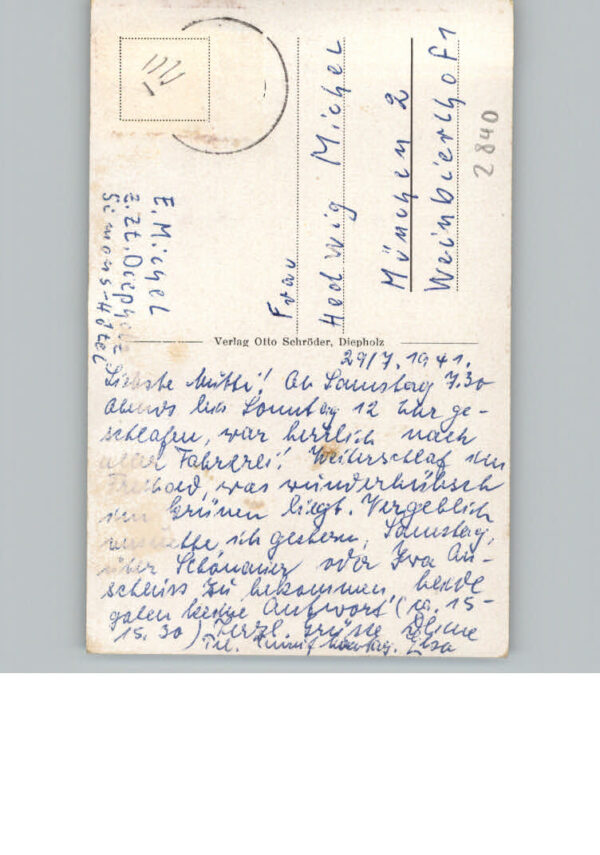 Frau
Hedwig Michel
München 2
Weinbierlhof 1
2840
E. Michel
z. Zt. Diepholz
Simons-Hotel
Verlag Otto Schröder, Diepholz
29/7. 1941.
Liebste Mutti! Ab Samstag 7.30
abends bis Sonntag 12 Uhr ge-
schlafen, war herrlich nach
aller Fahrerei! Weiterschlaf im
Freibad, was wunderhübsch
im Grünen liegt. Vergeblich
versuchte ich gestern, Samstag,
über Schönauer oder Iva An-
schluss zu bekommen, beide
gaben keine Antwort (ca. 15-
15.30) Herzl. Grüsse Deine
Tel. Elsa